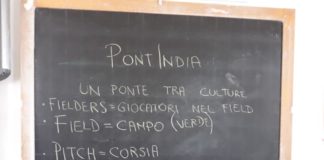 PONTINDIA
UN PONTE TRA CULTURE
• FIELDERS = GIOCATORI NEL FIELD
• FIELD = CAMPO (VERDE)
• PITCH = CORSIA